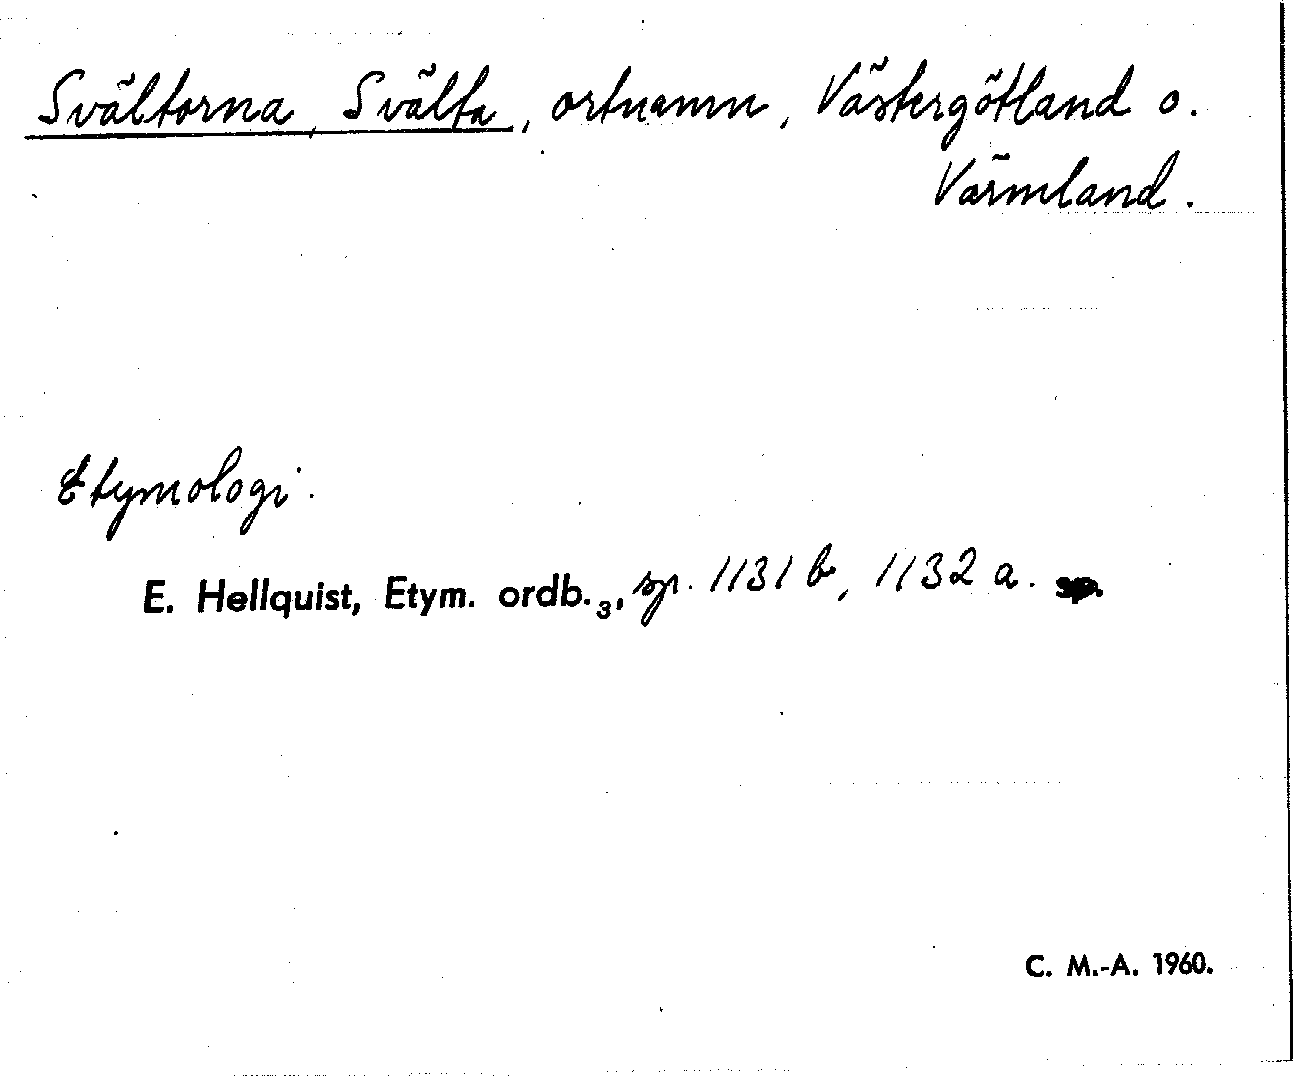 Svältorna, Svälta, ortnamn, Västergötland o.
Värmland.
Etymologi.
E. Hellquist, Etym. ordb.₃, sp. 1131 b, 1132 a. sp.
C. M.-A. 1960.